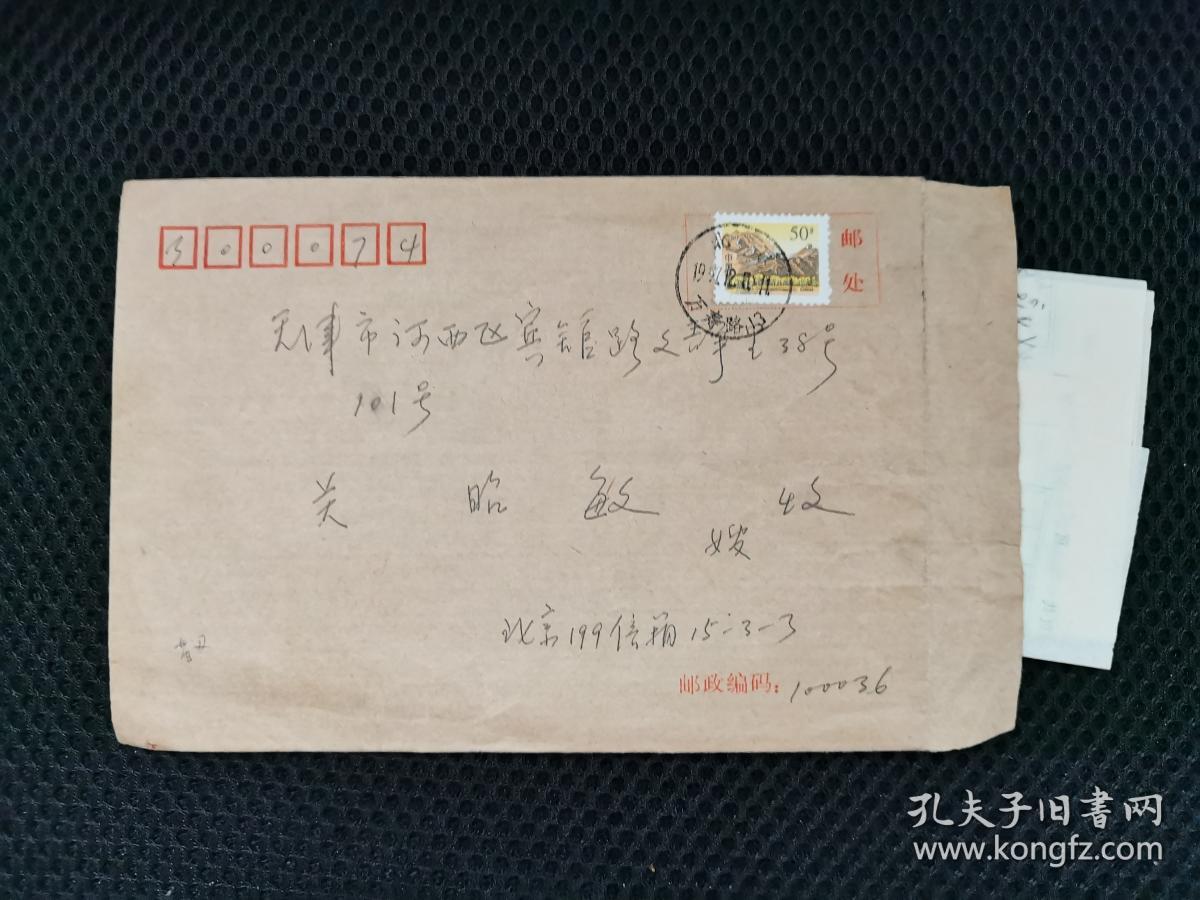 300074
50分
邮
处
北京
1997.12.
万寿路13
天津市河西区宾馆路文静里38号
101号
关昭敏 收
嫂
北京199信箱15-3-3
邮政编码:100036
孔夫子旧书网
www.kongfz.com